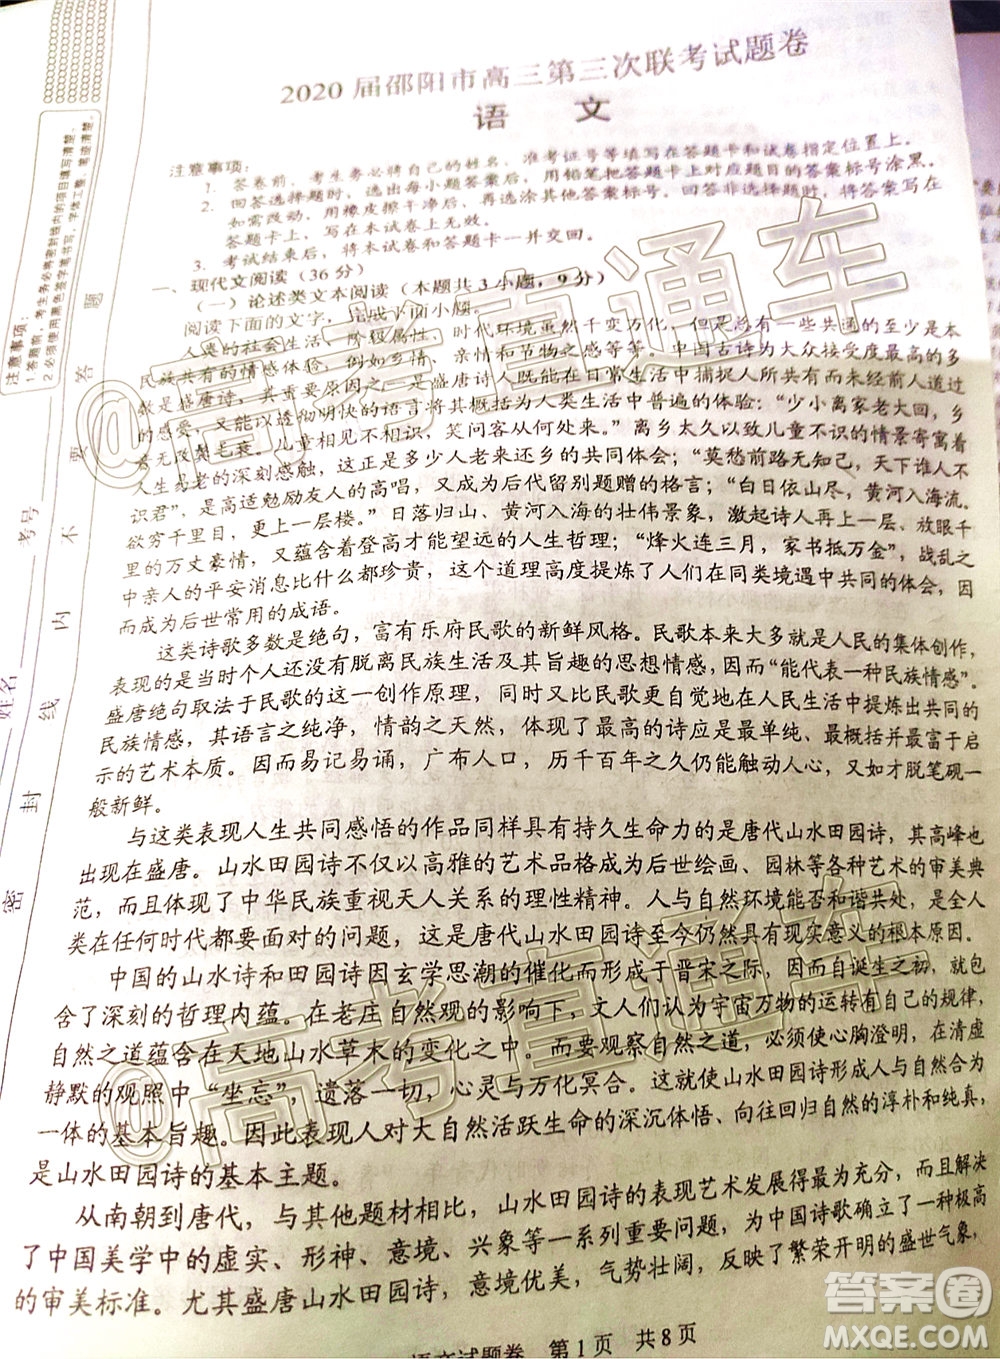 2020届邵阳市高三第三次联考试题卷
语 文
注意事项：
1. 答卷前，考生务必将自己的姓名、准考证号等填写在答题卡和试卷指定位置上。
2. 回答选择题时，选出每小题答案后，用铅笔把答题卡上对应题目的答案标号涂黑。
如需改动，用橡皮擦干净后，再选涂其它答案标号。回答非选择题时，将答案写在
答题卡上，写在本试卷上无效。
3. 考试结束后，将本试卷和答题卡一并交回。
一、现代文阅读（36分）
（一）论述类文本阅读（本题共3小题，9分）
阅读下面的文字，完成下面小题。
人类的社会生活、阶级属性、时代环境虽然千变万化，但是总有一些共通的至少在本
民族共有的情感体验，例如乡情、亲情、时节物候之感等等。中国古诗为大众接受度最高的多
数是盛唐诗，其重要原因就在于盛唐诗人们在日常生活中捕捉人所共有而未经前人道过
的感受，又能以透彻明快的语言概括成为人类生活中普遍的体验：“少小离家老大回，乡
音无改鬓毛衰。儿童相见不相识，笑问客从何处来。”离乡太久以致儿童不识的情景寄寓着
人生易老的深刻感触，这正是多少人老来还乡的共同体会；“莫愁前路无知己，天下谁人不
识君”，是高适勉励友人的高唱，又成为后代留别题赠的格言；“白日依山尽，黄河入海流。
欲穷千里目，更上一层楼。”日落归山、黄河入海的壮伟景象，激起诗人再上一层、放眼千
里的万丈豪情，又蕴含着登高才能望远的人生哲理；“烽火连三月，家书抵万金”，战乱之
中亲人的平安消息比什么都珍贵，这个道理高度提炼了人们在同类境遇中共同的体会，因
而成为后世常用的成语。
这类诗歌多数是绝句，富有乐府民歌的新鲜风格。民歌本来大多就是人民的集体创作，
表现的是当时人们没有脱离民族生活及其旨趣的思想情感，因而“能代表一种民族情感”。
盛唐绝句取法于民歌的这一创作原理，同时又比民歌更自觉地在人民生活中提炼出共同的
民族情感，其语言之纯净，情韵之天然，体现了最高的诗应是最单纯、最概括并最富于启
示的艺术本质。因而易记易诵，广布人口，历千百年之久仍能触动人心，又如才脱笔砚一
般新鲜。
与这类表现人生共同感悟的作品同样具有持久生命力的是唐代山水田园诗，其高峰也
出现在盛唐。山水田园诗不仅以高雅的艺术品格成为后世绘画、园林等各种艺术的审美典
范，而且体现了中华民族重视天人关系的理性精神。人与自然环境能否和谐共处，是全人
类在任何时代都要面对的问题，这是唐代山水田园诗至今仍然具有现实意义的根本原因。
中国的山水诗和田园诗因玄学思潮的催化而形成于晋宋之际，因而自诞生之初，就包
含了深刻的哲理内蕴。在老庄自然观的影响下，文人们认为宇宙万物的运转有自己的规律，
自然之道蕴含在天地山水草木的变化之中。而要观察自然之道，必须使心胸澄明，在清虚
静默的观照中“坐忘”，遗落一切，心灵与万化冥合。这就使山水田园诗形成人与自然合为
一体的基本旨趣。因此表现人对大自然活跃生命的深沉体悟、向往回归自然的淳朴和纯真，
是山水田园诗的基本主题。
从南朝到唐代，与其他题材相比，山水田园诗的表现艺术发展得最为充分，而且解决
了中国美学中的虚实、形神、意境、兴象等一系列重要问题，为中国诗歌确立了一种极高
的审美标准。尤其盛唐山水田园诗，意境优美，气势壮阔，反映了繁荣开明的盛世气象，
语文试题卷 第1页 共8页
注意事项：
1 答题前，考生务必将密封线内的项目填写清楚。
2 必须使用黑色签字笔书写，字体工整、笔迹清楚。
密 封 线 内 不 要 答 题
姓名
考号
@高考直通车
@高考直通车
答案圈
MXQE.COM